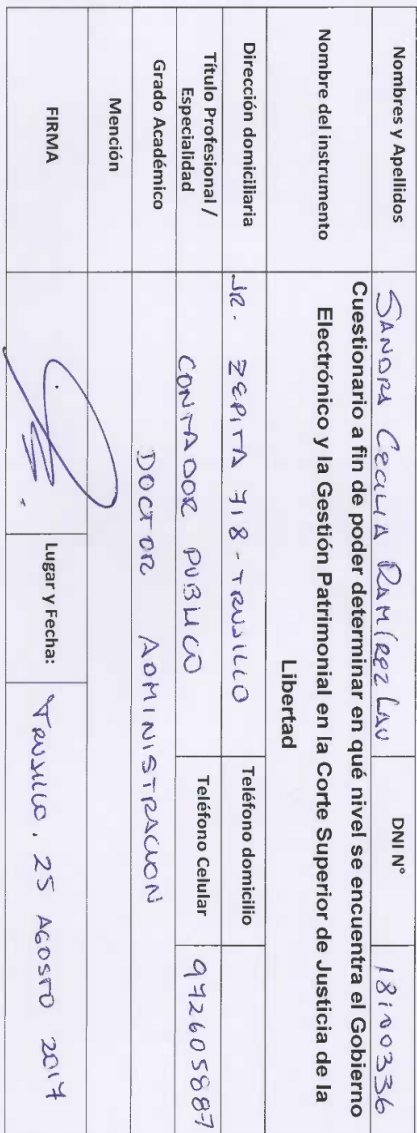 Nombres y Apellidos SANDRA CECILIA RAMÍREZ LAU DNI N° 18100336
Nombre del instrumento Cuestionario a fin de poder determinar en qué nivel se encuentra el Gobierno
Electrónico y la Gestión Patrimonial en la Corte Superior de Justicia de la
Libertad
Dirección domiciliaria JR. ZEPITA 718 - TRUJILLO Teléfono domicilio
Título Profesional /
Especialidad CONTADOR PUBLICO Teléfono Celular 972605887
Grado Académico DOCTOR ADMINISTRACION
Mención
FIRMA Lugar y Fecha: TRUJILLO, 25 AGOSTO 2017